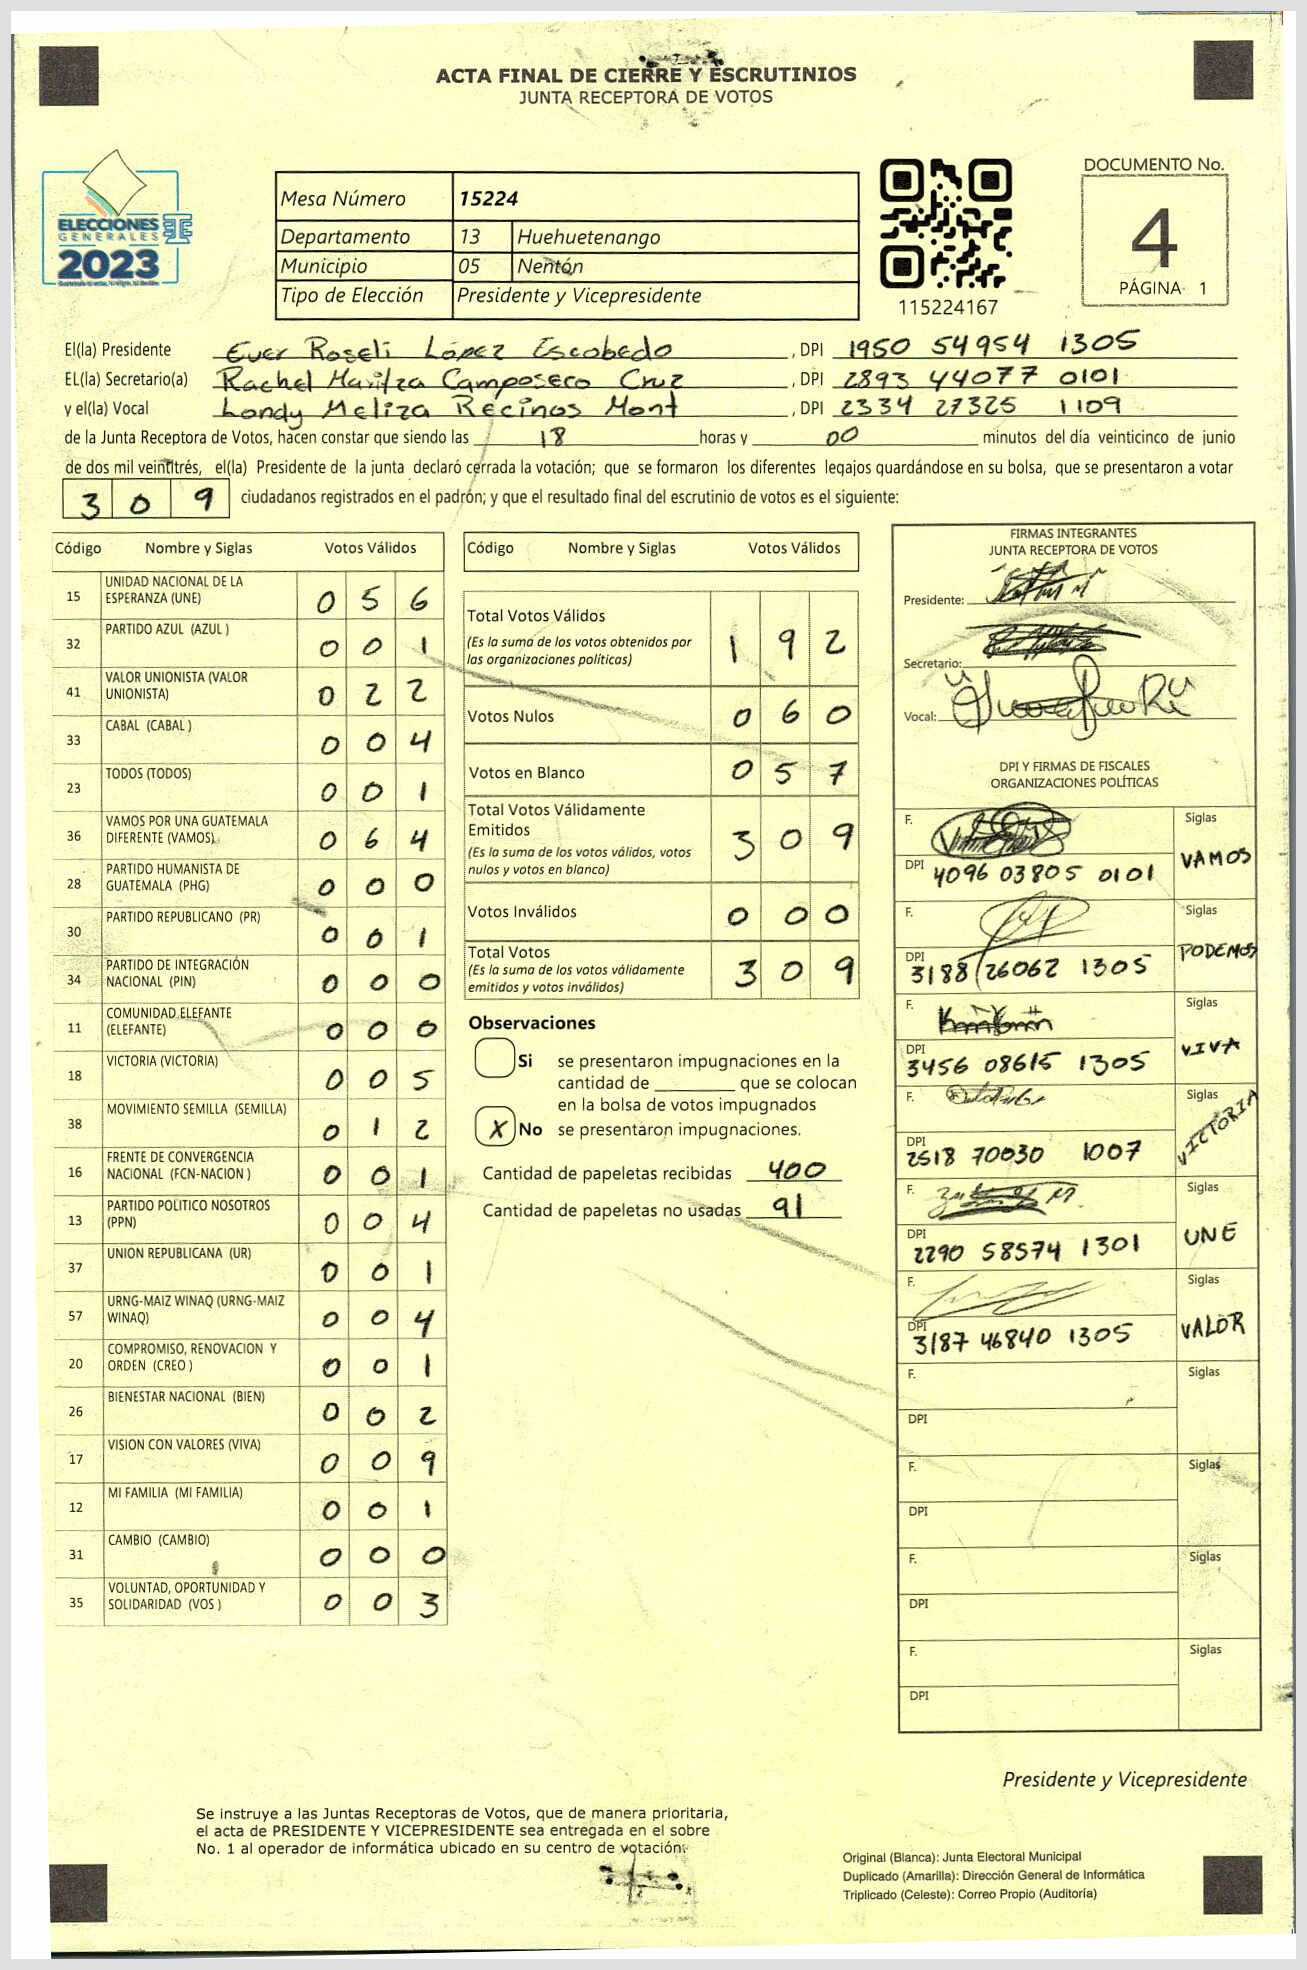 ACTA FINAL DE CIERRE Y ESCRUTINIOS
JUNTA RECEPTORA DE VOTOS
ELECCIONES
GENERALES
2023
Mesa Número 15224
Departamento 13 Huehuetenango
Municipio 05 Nentón
Tipo de Elección Presidente y Vicepresidente
115224167
DOCUMENTO No.
4
PÁGINA 1
El(la) Presidente Euer Roseli López Escobedo , DPI 1950 54954 1305
EL(la) Secretario(a) Rachel Maritza Camposeco Cruz , DPI 2893 44077 0101
y el(la) Vocal Londy Meliza Recinos Mont , DPI 2334 27325 1109
de la Junta Receptora de Votos, hacen constar que siendo las 18 horas y 00 minutos del día veinticinco de junio
de dos mil veintitrés, el(la) Presidente de la junta declaró cerrada la votación; que se formaron los diferentes legajos guardándose en su bolsa, que se presentaron a votar
309 ciudadanos registrados en el padrón; y que el resultado final del escrutinio de votos es el siguiente:
Código Nombre y Siglas Votos Válidos
15 UNIDAD NACIONAL DE LA
ESPERANZA (UNE) 0 5 6
32 PARTIDO AZUL (AZUL ) 0 0 1
41 VALOR UNIONISTA (VALOR
UNIONISTA) 0 2 2
33 CABAL (CABAL ) 0 0 4
23 TODOS (TODOS) 0 0 1
36 VAMOS POR UNA GUATEMALA
DIFERENTE (VAMOS) 0 6 4
28 PARTIDO HUMANISTA DE
GUATEMALA (PHG) 0 0 0
30 PARTIDO REPUBLICANO (PR) 0 0 1
34 PARTIDO DE INTEGRACIÓN
NACIONAL (PIN) 0 0 0
11 COMUNIDAD ELEFANTE
(ELEFANTE) 0 0 0
18 VICTORIA (VICTORIA) 0 0 5
38 MOVIMIENTO SEMILLA (SEMILLA) 0 1 2
16 FRENTE DE CONVERGENCIA
NACIONAL (FCN-NACION ) 0 0 1
13 PARTIDO POLITICO NOSOTROS
(PPN) 0 0 4
37 UNION REPUBLICANA (UR) 0 0 1
57 URNG-MAIZ WINAQ (URNG-MAIZ
WINAQ) 0 0 4
20 COMPROMISO, RENOVACION Y
ORDEN (CREO ) 0 0 1
26 BIENESTAR NACIONAL (BIEN) 0 0 2
17 VISION CON VALORES (VIVA) 0 0 9
12 MI FAMILIA (MI FAMILIA) 0 0 1
31 CAMBIO (CAMBIO) 0 0 0
35 VOLUNTAD, OPORTUNIDAD Y
SOLIDARIDAD (VOS ) 0 0 3
Código Nombre y Siglas Votos Válidos
Total Votos Válidos 1 9 2
(Es la suma de los votos obtenidos por
las organizaciones políticas)
Votos Nulos 0 6 0
Votos en Blanco 0 5 7
Total Votos Válidamente
Emitidos 3 0 9
(Es la suma de los votos válidos, votos
nulos y votos en blanco)
Votos Inválidos 0 0 0
Total Votos 3 0 9
(Es la suma de los votos válidamente
emitidos y votos inválidos)
Observaciones
Si se presentaron impugnaciones en la
cantidad de ________ que se colocan
en la bolsa de votos impugnados
X No se presentaron impugnaciones.
Cantidad de papeletas recibidas 400
Cantidad de papeletas no usadas 91
FIRMAS INTEGRANTES
JUNTA RECEPTORA DE VOTOS
Presidente:
Secretario:
Vocal:
DPI Y FIRMAS DE FISCALES
ORGANIZACIONES POLÍTICAS
F. Siglas
DPI 4096 03805 0101 VAMOS
F. Siglas
DPI 3188 26062 1305 PODEMOS
F. Siglas
DPI 3456 08615 1305 VIVA
F. Siglas
DPI 2518 70030 1007 VICTORIA
F. Siglas
DPI 2290 58574 1301 UNE
F. Siglas
DPI 3187 46840 1305 VALOR
F. Siglas
DPI
F. Siglas
DPI
F. Siglas
DPI
F. Siglas
DPI
Presidente y Vicepresidente
Se instruye a las Juntas Receptoras de Votos, que de manera prioritaria,
el acta de PRESIDENTE Y VICEPRESIDENTE sea entregada en el sobre
No. 1 al operador de informática ubicado en su centro de votación.
Original (Blanca): Junta Electoral Municipal
Duplicado (Amarilla): Dirección General de Informática
Triplicado (Celeste): Correo Propio (Auditoría)